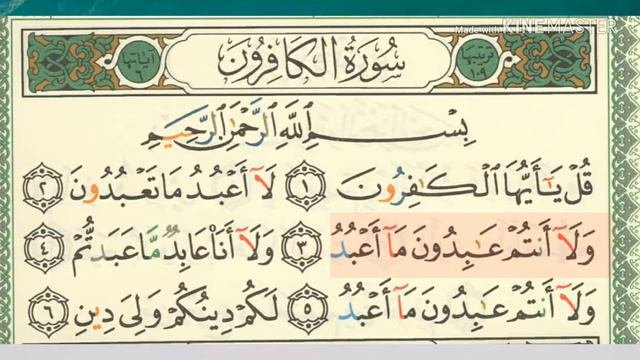 Made with KINEMASTER
ترتيبها ١٠٩ سُورَةُ الكَافِرُونَ آياتها ٦
بِسْمِ ٱللَّهِ ٱلرَّحْمَٰنِ ٱلرَّحِيمِ
قُلْ يَٰٓأَيُّهَا ٱلْكَٰفِرُونَ ١ لَآ أَعْبُدُ مَا تَعْبُدُونَ ٢
وَلَآ أَنتُمْ عَٰبِدُونَ مَآ أَعْبُدُ ٣ وَلَآ أَنَا۠ عَابِدٌ مَّا عَبَدتُّمْ ٤
وَلَآ أَنتُمْ عَٰبِدُونَ مَآ أَعْبُدُ ٥ لَكُمْ دِينُكُمْ وَلِىَ دِينِ ٦